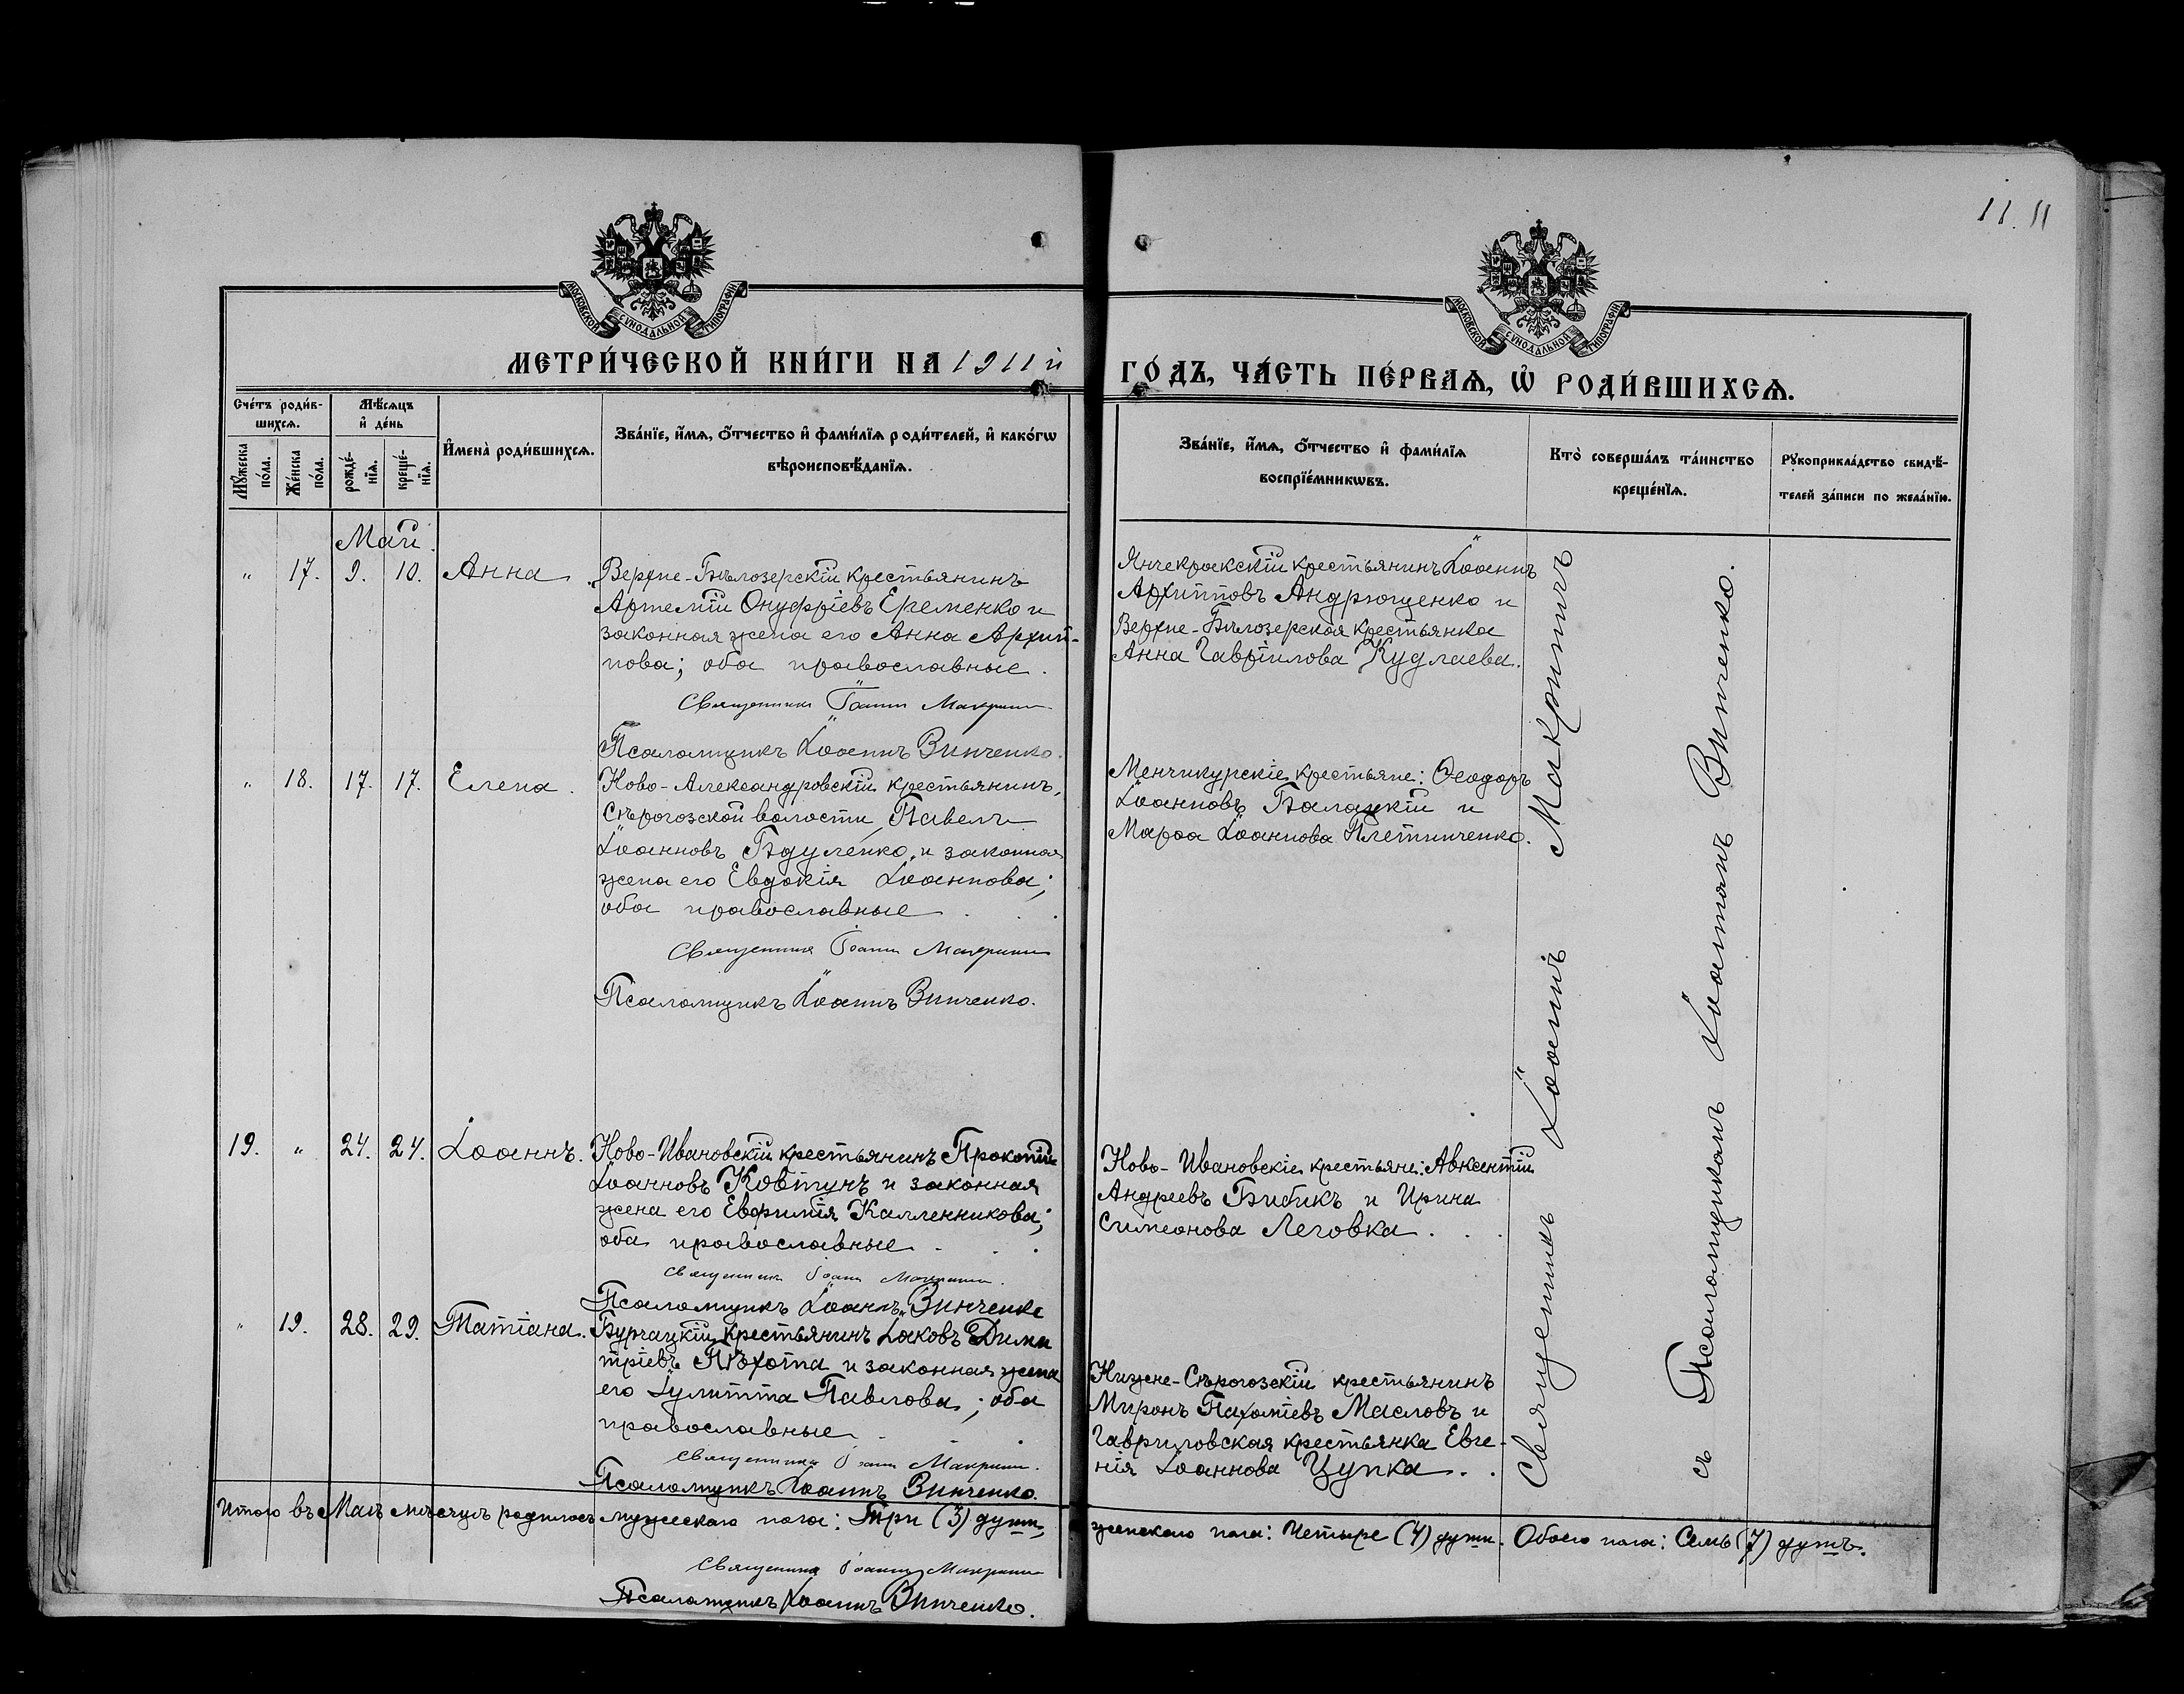 11. 11
МОСКОВСКОЙ СѴНОДАЛЬНОЙ ТИПОГРАФІИ
МОСКОВСКОЙ СѴНОДАЛЬНОЙ ТИПОГРАФІИ
МЕТРИ́ЧЕСКОЙ КНИ́ГИ НА 1911 й
ГО́ДЪ, ЧА́СТЬ ПЕ́РВАѦ, Ѡ҆ РОДИ́ВШИХСѦ.
Сче́тъ роди́в-
шихсѧ.
Мѣ́сѧцъ
и҆ де́нь
Мꙋ́жеска
по́ла.
Же́нска
по́ла.
рожде́-
нїѧ.
креще́-
нїѧ.
И҆мена̀ роди́вшихсѧ.
Зва́нїе, и҆́мѧ, ѻ҆́тчество и҆ фами́лїѧ роди́телей, и҆ како́гѡ
вѣроисповѣ́данїѧ.
Зва́нїе, и҆́мѧ, ѻ҆́тчество и҆ фами́лїѧ
воспрїе́мникѡвъ.
Кто̀ соверша́лъ та́инство
креще́нїѧ.
Рꙋкоприкла́дство свидѣ́-
телей за́писи по жела́нїю.
Май.
„ 17. 9. 10. Анна.
Верхне-Бѣлозерскій крестьянинъ
Артемій Онуфріевъ Еременко и
законная жена его Анна Архип-
пова; оба православные.
Священникъ Іоаннъ Макринич
Псаломщикъ Іоаннъ Винченко.
Янчекракскій крестьянинъ Іоаннъ
Архипповъ Андрющенко и
Верхне-Бѣлозерская крестьянка
Анна Гавріилова Кудлаева.
„ 18. 17. 17. Елена.
Ново-Александровскій крестьянинъ,
Сѣрогозской волости, Павелъ
Іоанновъ Бдуленко, и законная
жена его Евдокія Іоаннова;
оба православные . . .
Священникъ Іоаннъ Макринич
Псаломщикъ Іоаннъ Винченко.
Менчикурскіе крестьяне: Ѳеодоръ
Іоанновъ Балацкій и
Марѳа Іоаннова Плетинченко.
19. „ 24. 24. Іоаннъ.
Ново-Ивановскій крестьянинъ Прокопій
Іоанновъ Ковтунъ и законная
жена его Евфимія Каллеnикова;
оба православные . . .
Священникъ Іоаннъ Макринич.
Псаломщикъ Іоаннъ Винченко
Ново-Ивановскіе крестьяне: Авксентій
Андреевъ Бибикъ и Ирина
Симеонова Леговка . . .
„ 19. 28. 29. Татіана.
Бурчацкій крестьянинъ Іаковъ Дими
тріевъ Пѣхота и законная жена
его Іулитта Павлова; оба
православные . . .
Священникъ Іоаннъ Макринич.
Псаломщикъ Іоаннъ Винченко.
Нижне-Сѣрогозскій крестьянинъ
Миронъ Пахоміевъ Масловъ и
Гавриловская крестьянка Евге-
нія Іоаннова Цупка . .
Священникъ Іоаннъ Макриничъ
съ Псаломщикомъ Іоанномъ Винченко.
Итого въ Маѣ мѣсяцѣ родилось мужескаго пола: Три (3) души,
женскаго пола: Четыре (4) души. Обоего пола: Семь (7) душъ.
Священникъ Іоаннъ Макринич
Псаломщикъ Іоаннъ Винченко.